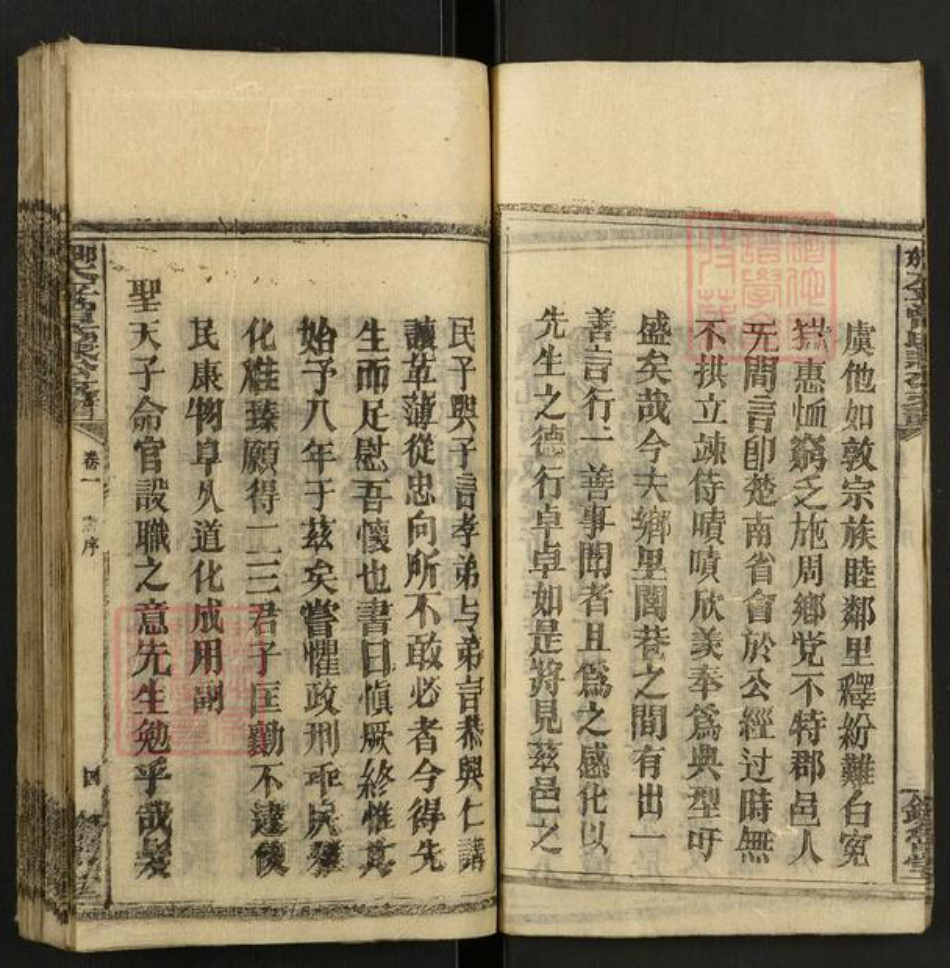 虞他如敦宗族睦鄰里釋紛難白冤
獄惠恤窮乏施周鄉党不特郡邑人
无間言卽楚南省會於公經过時無
不拱立竦侍嘖嘖欣羡奉爲典型吁
盛矣哉今夫鄉里閭巷之間有出一
善言行一善事聞者且爲之感化以
先生之德行卓卓如是將見茲邑之
民子與子言孝弟与弟言恭興仁講
讓革薄從忠向所不敢必者今得先
生而足慰吾懷也書曰慎厥終惟其
始予八年于茲矣嘗懼政刑乖戾
化雅臻願得一二三君子匡勷不逮俊
民康物阜久道化成用副
聖天子命官設職之意先生勉乎哉
卷一 序
四